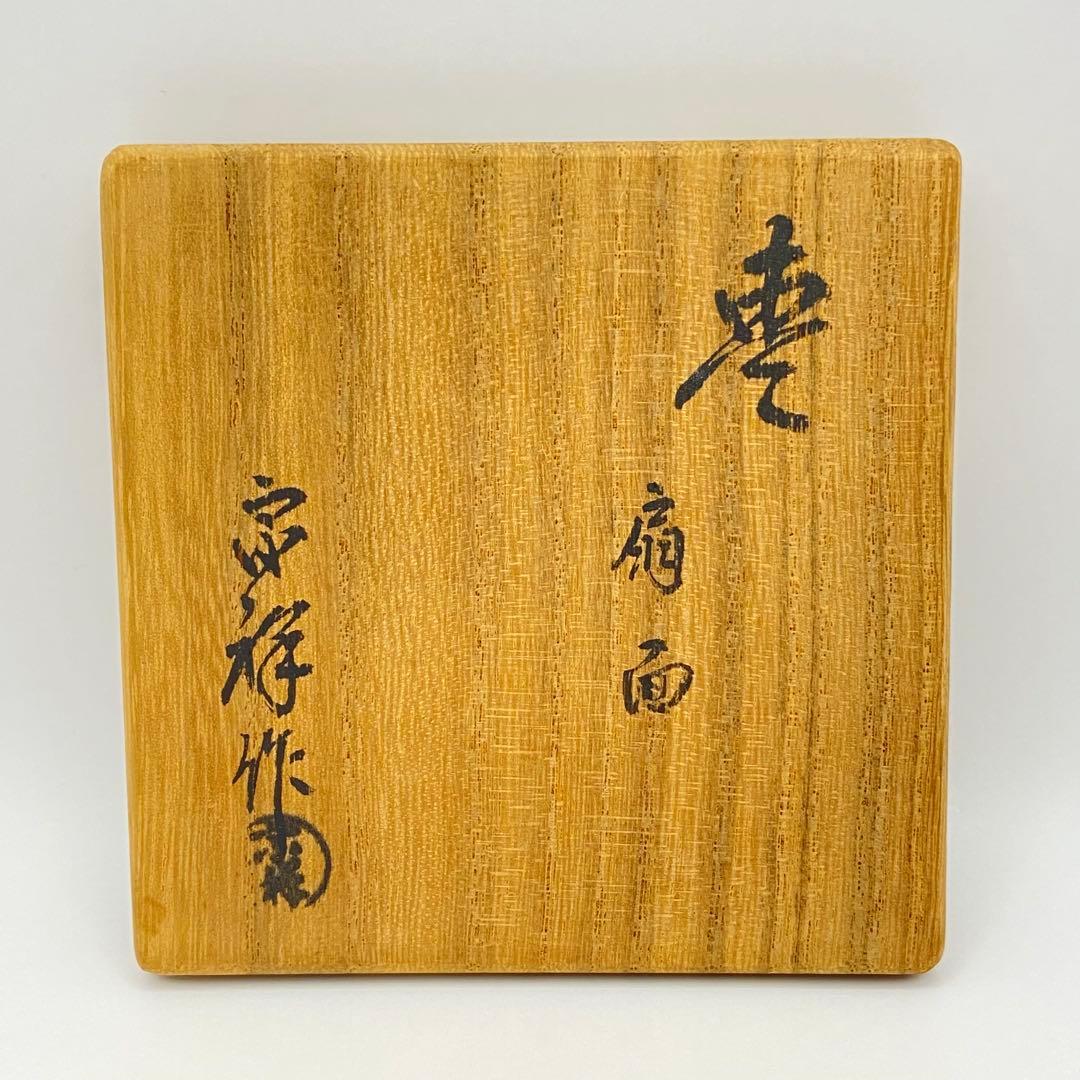 棗
扇面
宗祥作